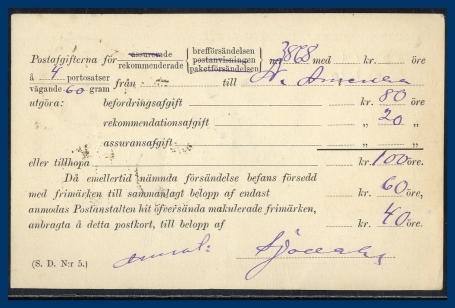 Postafgifterna för assurerade rekommenderade brefförsändelsen postanvisningen paketförsändelsen no 3868 med kr. öre
à 4 portosatser från till N. Amerika
vägande 60 gram
utgöra: befordringsafgift kr. 80 öre
rekommendationsafgift „ 20 „
assuransafgift „ „
eller tillhopa kr. 100 öre.
Då emellertid nämnda försändelse befans försedd
med frimärken till sammanlagt belopp af endast kr. 60 öre,
anmodas Postanstalten hit öfversända makulerade frimärken,
anbragta å detta postkort, till belopp af kr. 40 öre.
(S. D. N:r 5.)